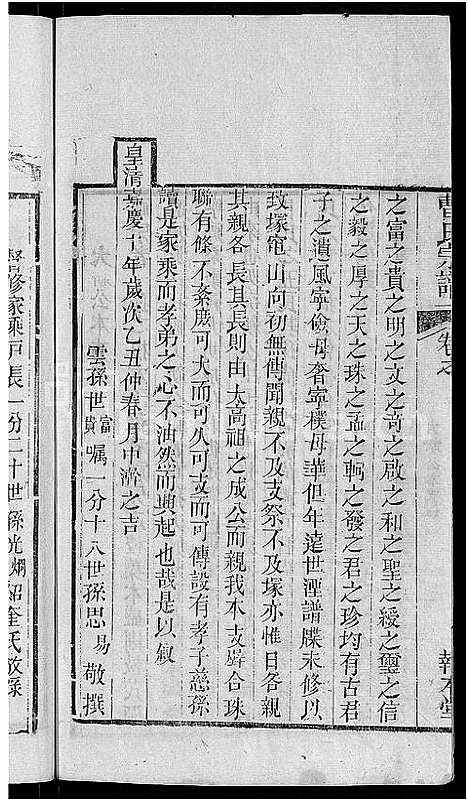 曹氏宗譜
卷之
之富之貴之明之文之奇之啟之和之聖之綬之璽之信
之毅之厚之天之珠之孟之軻之發之君之珍均有古君
子之遺風寧儉毋奢寧樸毋華但年遠世湮譜牒未修以
致塚窀山向初無傳聞親不及支祭不及塚亦惟日各親
其親各長其長則由太高祖之成公而親我本支辟合珠
聯有條不紊庶可大而可久可支而可傳設有孝子慈孫
讀是家乘而孝弟之心不油然而興起也哉是以敘
皇清嘉慶十年歲次乙丑仲春月中澣之吉
雲孫世富貴嘱一分十八世孫思易敬撰
督修家乘戶長一分二十世孫光炯紹奎氏敬錄